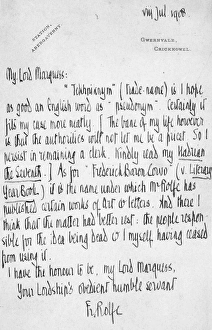 viij Jul. 1908.
STATION,
ABERGAVENNY
GWERNVALE,
CRICKHOWEL.
My Lord Marquess:
"Tekhnonym" (trade name) is I hope
as good an English word as "pseudonym". Certainly it
fits my case more neatly. [The bane of my life however
is that the authorities will not let me be a priest. So I
persist in remaining a clerk. Kindly read my Hadrian
the Seventh.] As for "Frederick Baron Corvo" (v. Literary
Year Book.) it is the name under which Mr Rolfe has
published certain works of Art & letters. And there I
think that the matter had better rest: the people respon-
sible for the idea being dead & I myself having ceased
from using it.
I have the honour to be, my Lord Marquess,
Your Lordship's obedient humble servant
Fr. Rolfe